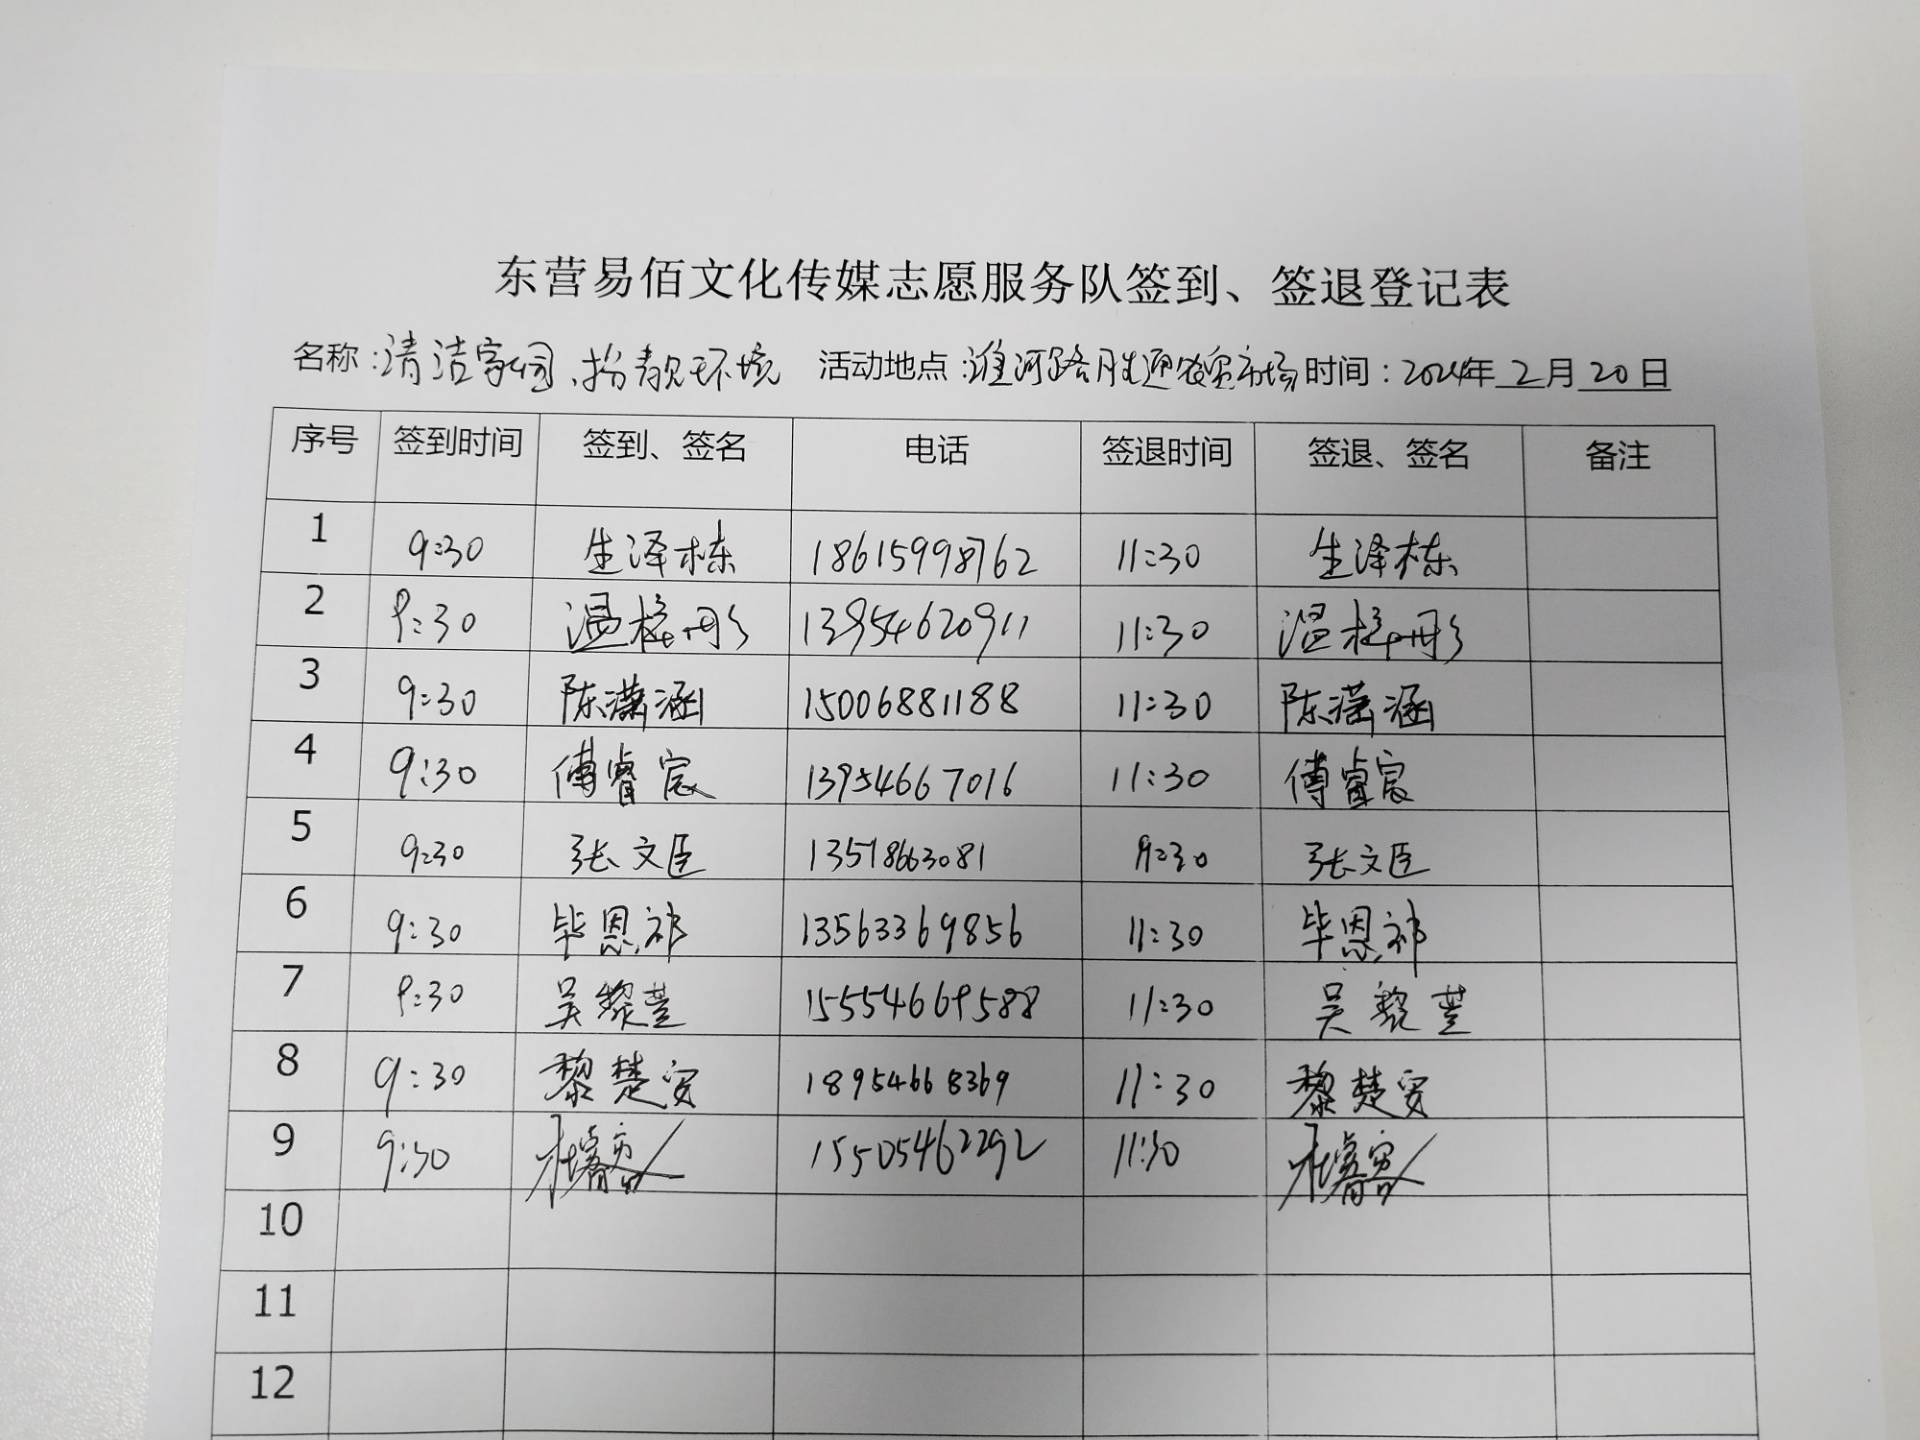 东营易佰文化传媒志愿服务队签到、签退登记表
名称:清洁家园、扮靓环境 活动地点:淮河路胜通农贸市场 时间:2024年2月20日
序号 签到时间 签到、签名 电话 签退时间 签退、签名 备注
1 9:30 生泽栋 18615998762 11:30 生泽栋
2 9:30 温梓彤 13954620911 11:30 温梓彤
3 9:30 陈潇涵 15006881188 11:30 陈潇涵
4 9:30 傅睿宸 13954667016 11:30 傅睿宸
5 9:30 张文臣 13518663081 9:30 张文臣
6 9:30 毕恩祁 13563369856 11:30 毕恩祁
7 9:30 吴黎萱 15554669588 11:30 吴黎萱
8 9:30 黎楚安 18954668369 11:30 黎楚安
9 9:30 15505462292 11:30
10
11
12